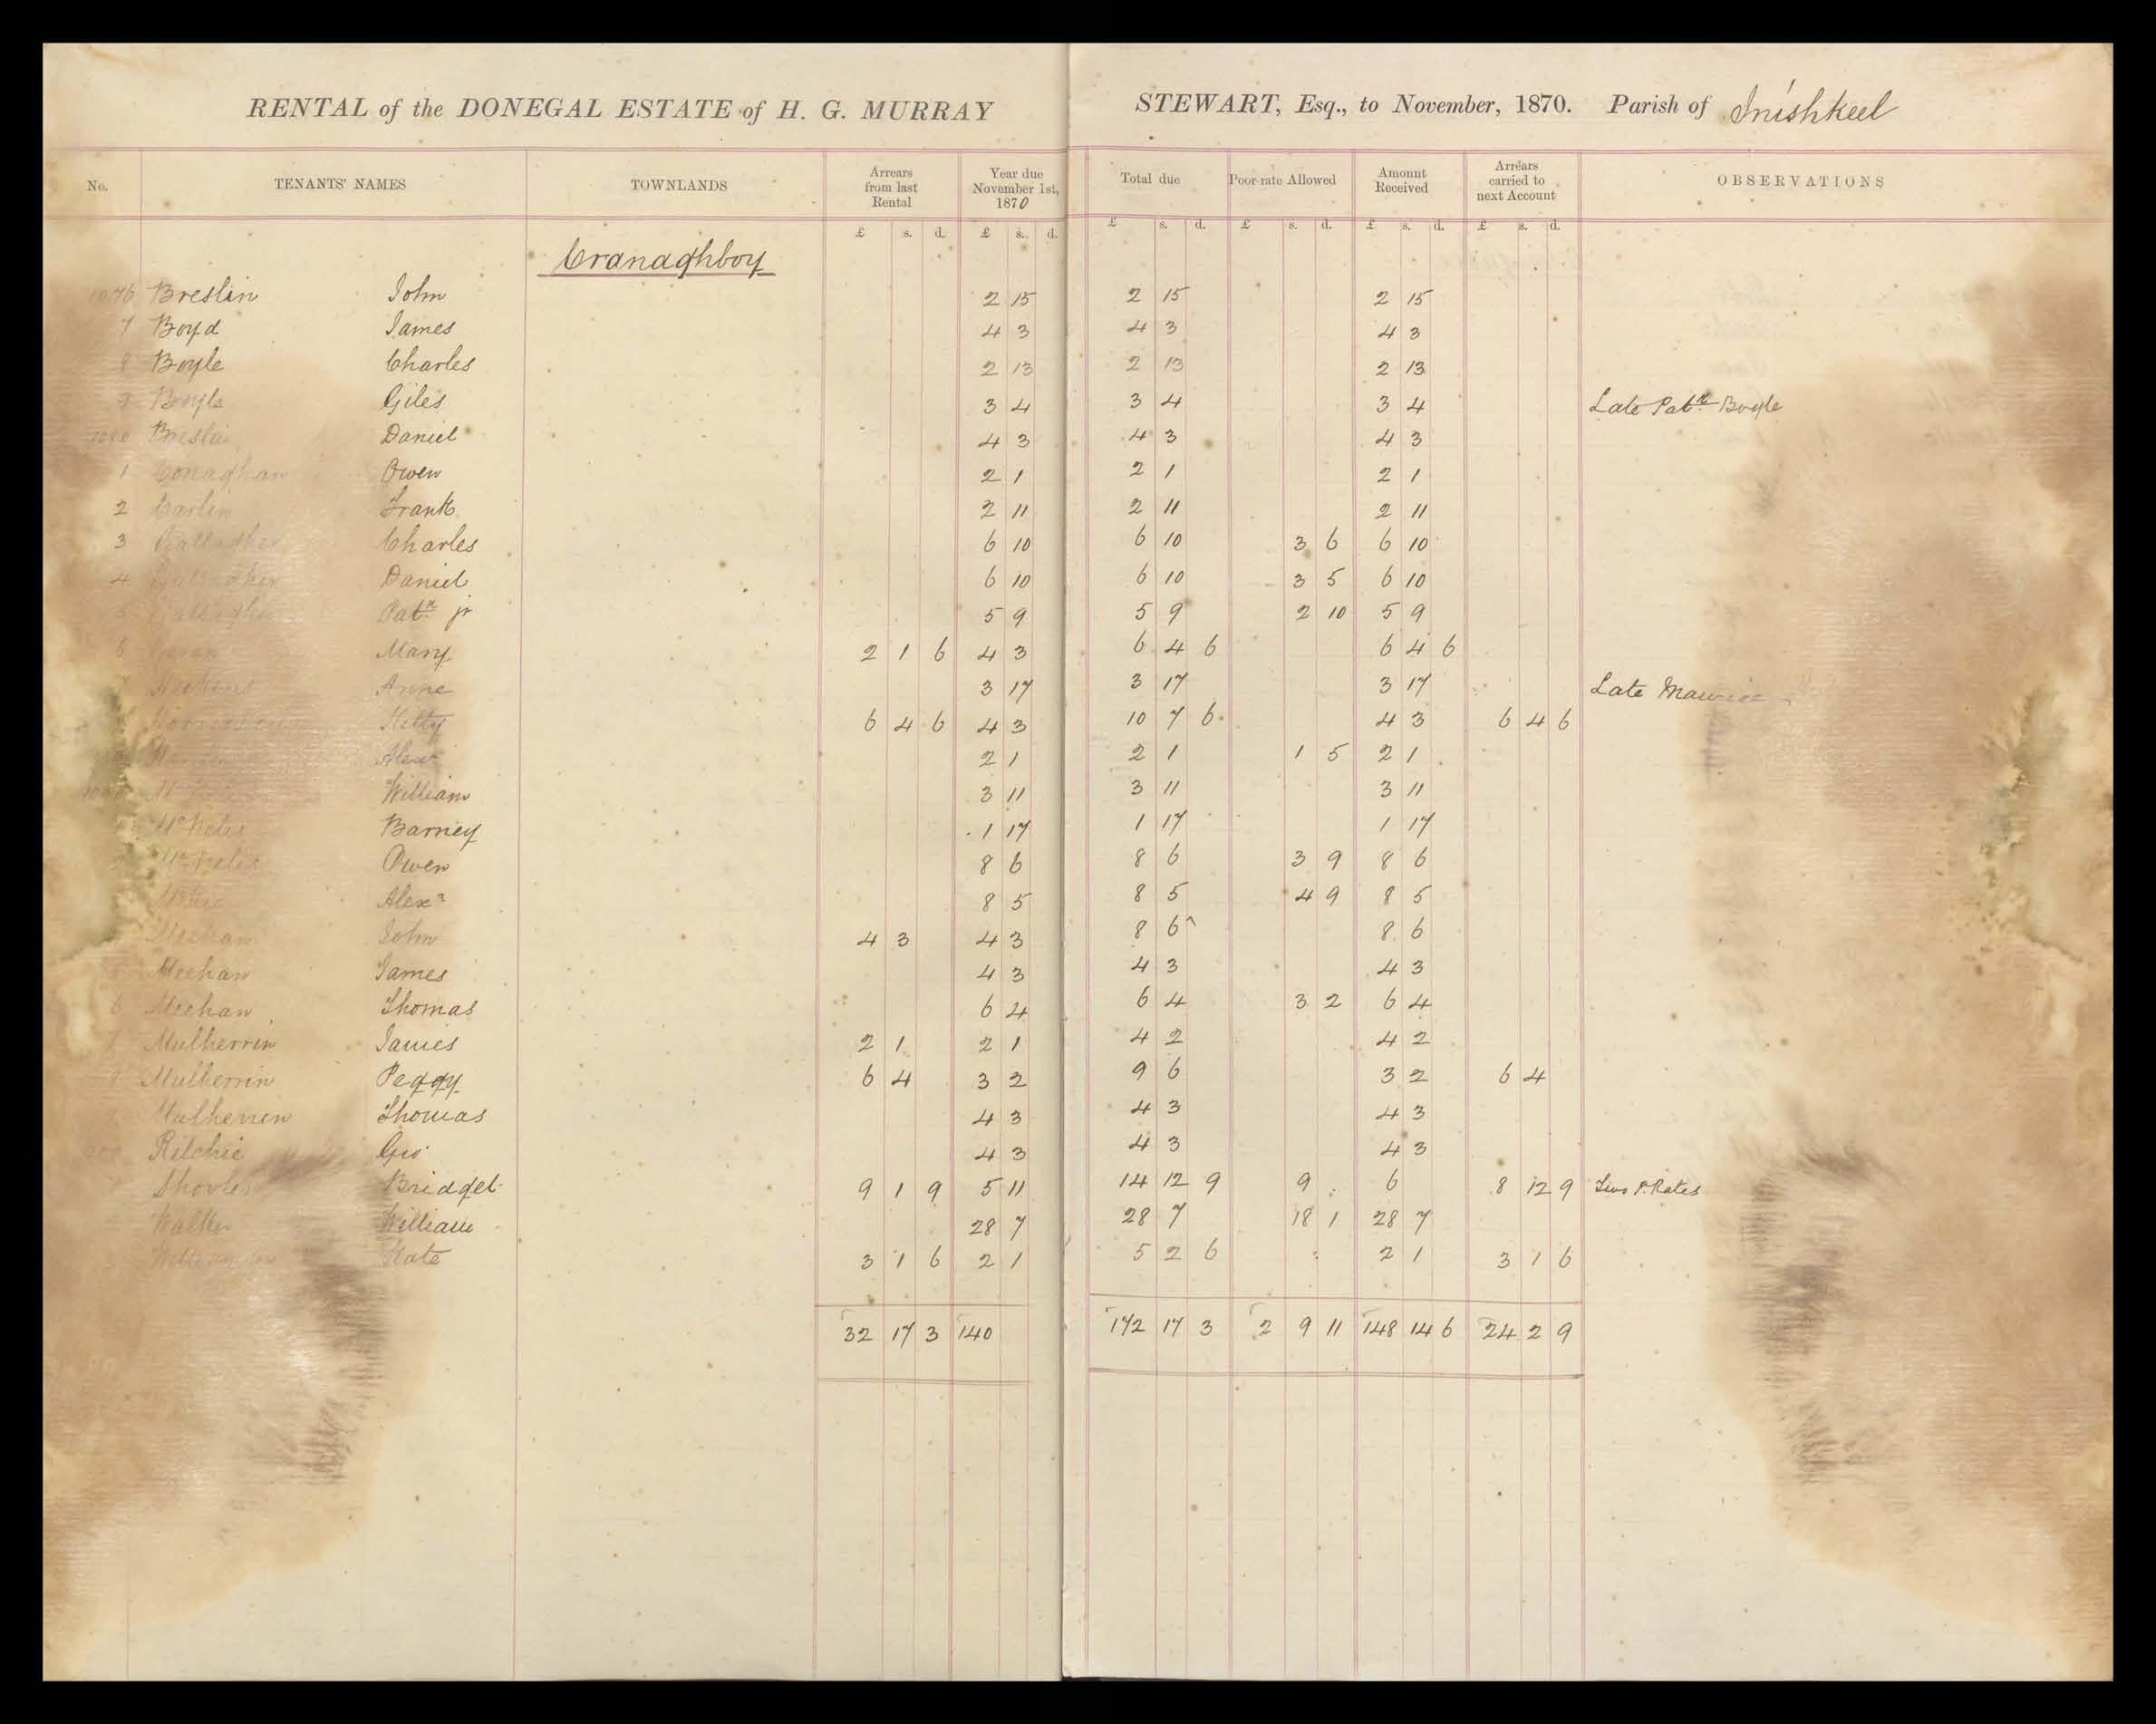 RENTAL of the DONEGAL ESTATE of H. G. MURRAY STEWART, Esq., to November, 1870. Parish of Inishkeel
No. TENANTS' NAMES TOWNLANDS Arrears from last Rental Year due November 1st, 1870 Total due Poor-rate Allowed Amount Received Arrears carried to next Account OBSERVATIONS
£ s. d. £ s. d. £ s. d. £ s. d. £ s. d. £ s. d.
Cranaghboy
1076 Breslin John 2 15 2 15 2 15
7 Boyd James 4 3 4 3 4 3
8 Boyle Charles 2 13 2 13 2 13
9 Boyle Giles 3 4 3 4 3 4 Late Patk Boyle
1080 Breslin Daniel 4 3 4 3 4 3
1 Conaghan Owen 2 1 2 1 2 1
2 Carlin Frank 2 11 2 11 2 11
3 Gallagher Charles 6 10 6 10 3 6 6 10
4 Gallagher Daniel 6 10 6 10 3 5 6 10
5 Gallagher Patk jr 5 9 5 9 2 10 5 9
6 Mary 2 1 6 4 3 6 4 6 6 4 6
7 Anne 3 17 3 17 3 17 Late Maurice
Kitty 6 4 6 4 3 10 7 6 4 3 6 4 6
Alexr 2 1 2 1 1 5 2 1
William 3 11 3 11 3 11
Barney 1 17 1 17 1 17
Owen 8 6 8 6 3 9 8 6
Alexr 8 5 8 5 4 9 8 5
Meehan John 4 3 4 3 8 6 8 6
Meehan James 4 3 4 3 4 3
6 Meehan Thomas 6 4 6 4 3 2 6 4
7 Mulherrin James 2 1 2 1 4 2 4 2
8 Mulherrin Peggy 6 4 3 2 9 6 3 2 6 4
Mulherrin Thomas 4 3 4 3 4 3
Ritchie Geo 4 3 4 3 4 3
Shovlin Bridget 9 1 9 5 11 14 12 9 9 6 8 12 9 Two P. Rates
Walker William 28 7 28 7 18 1 28 7
Kate 3 1 6 2 1 5 2 6 2 1 3 1 6
32 17 3 140 172 17 3 2 9 11 148 14 6 24 2 9